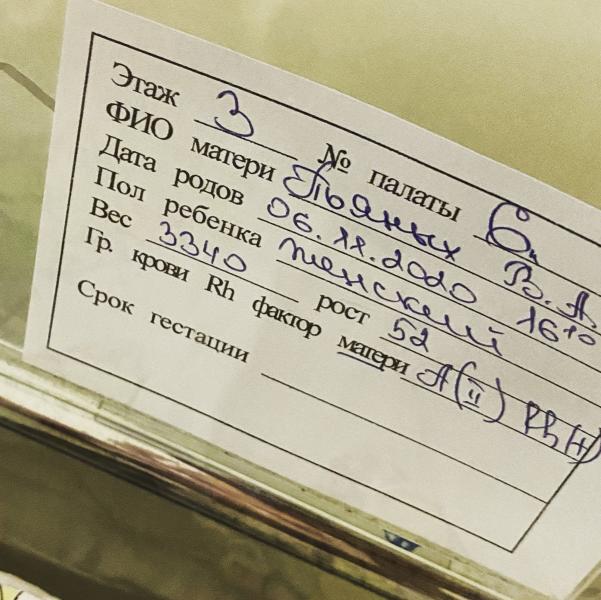 Этаж 3 № палаты 6
ФИО матери Пьяных В. А.
Дата родов 06.11.2020 16¹⁰
Пол ребенка женский
Вес 3340 рост 52
Гр. крови Rh фактор матери A(II) Rh(+)
Срок гестации